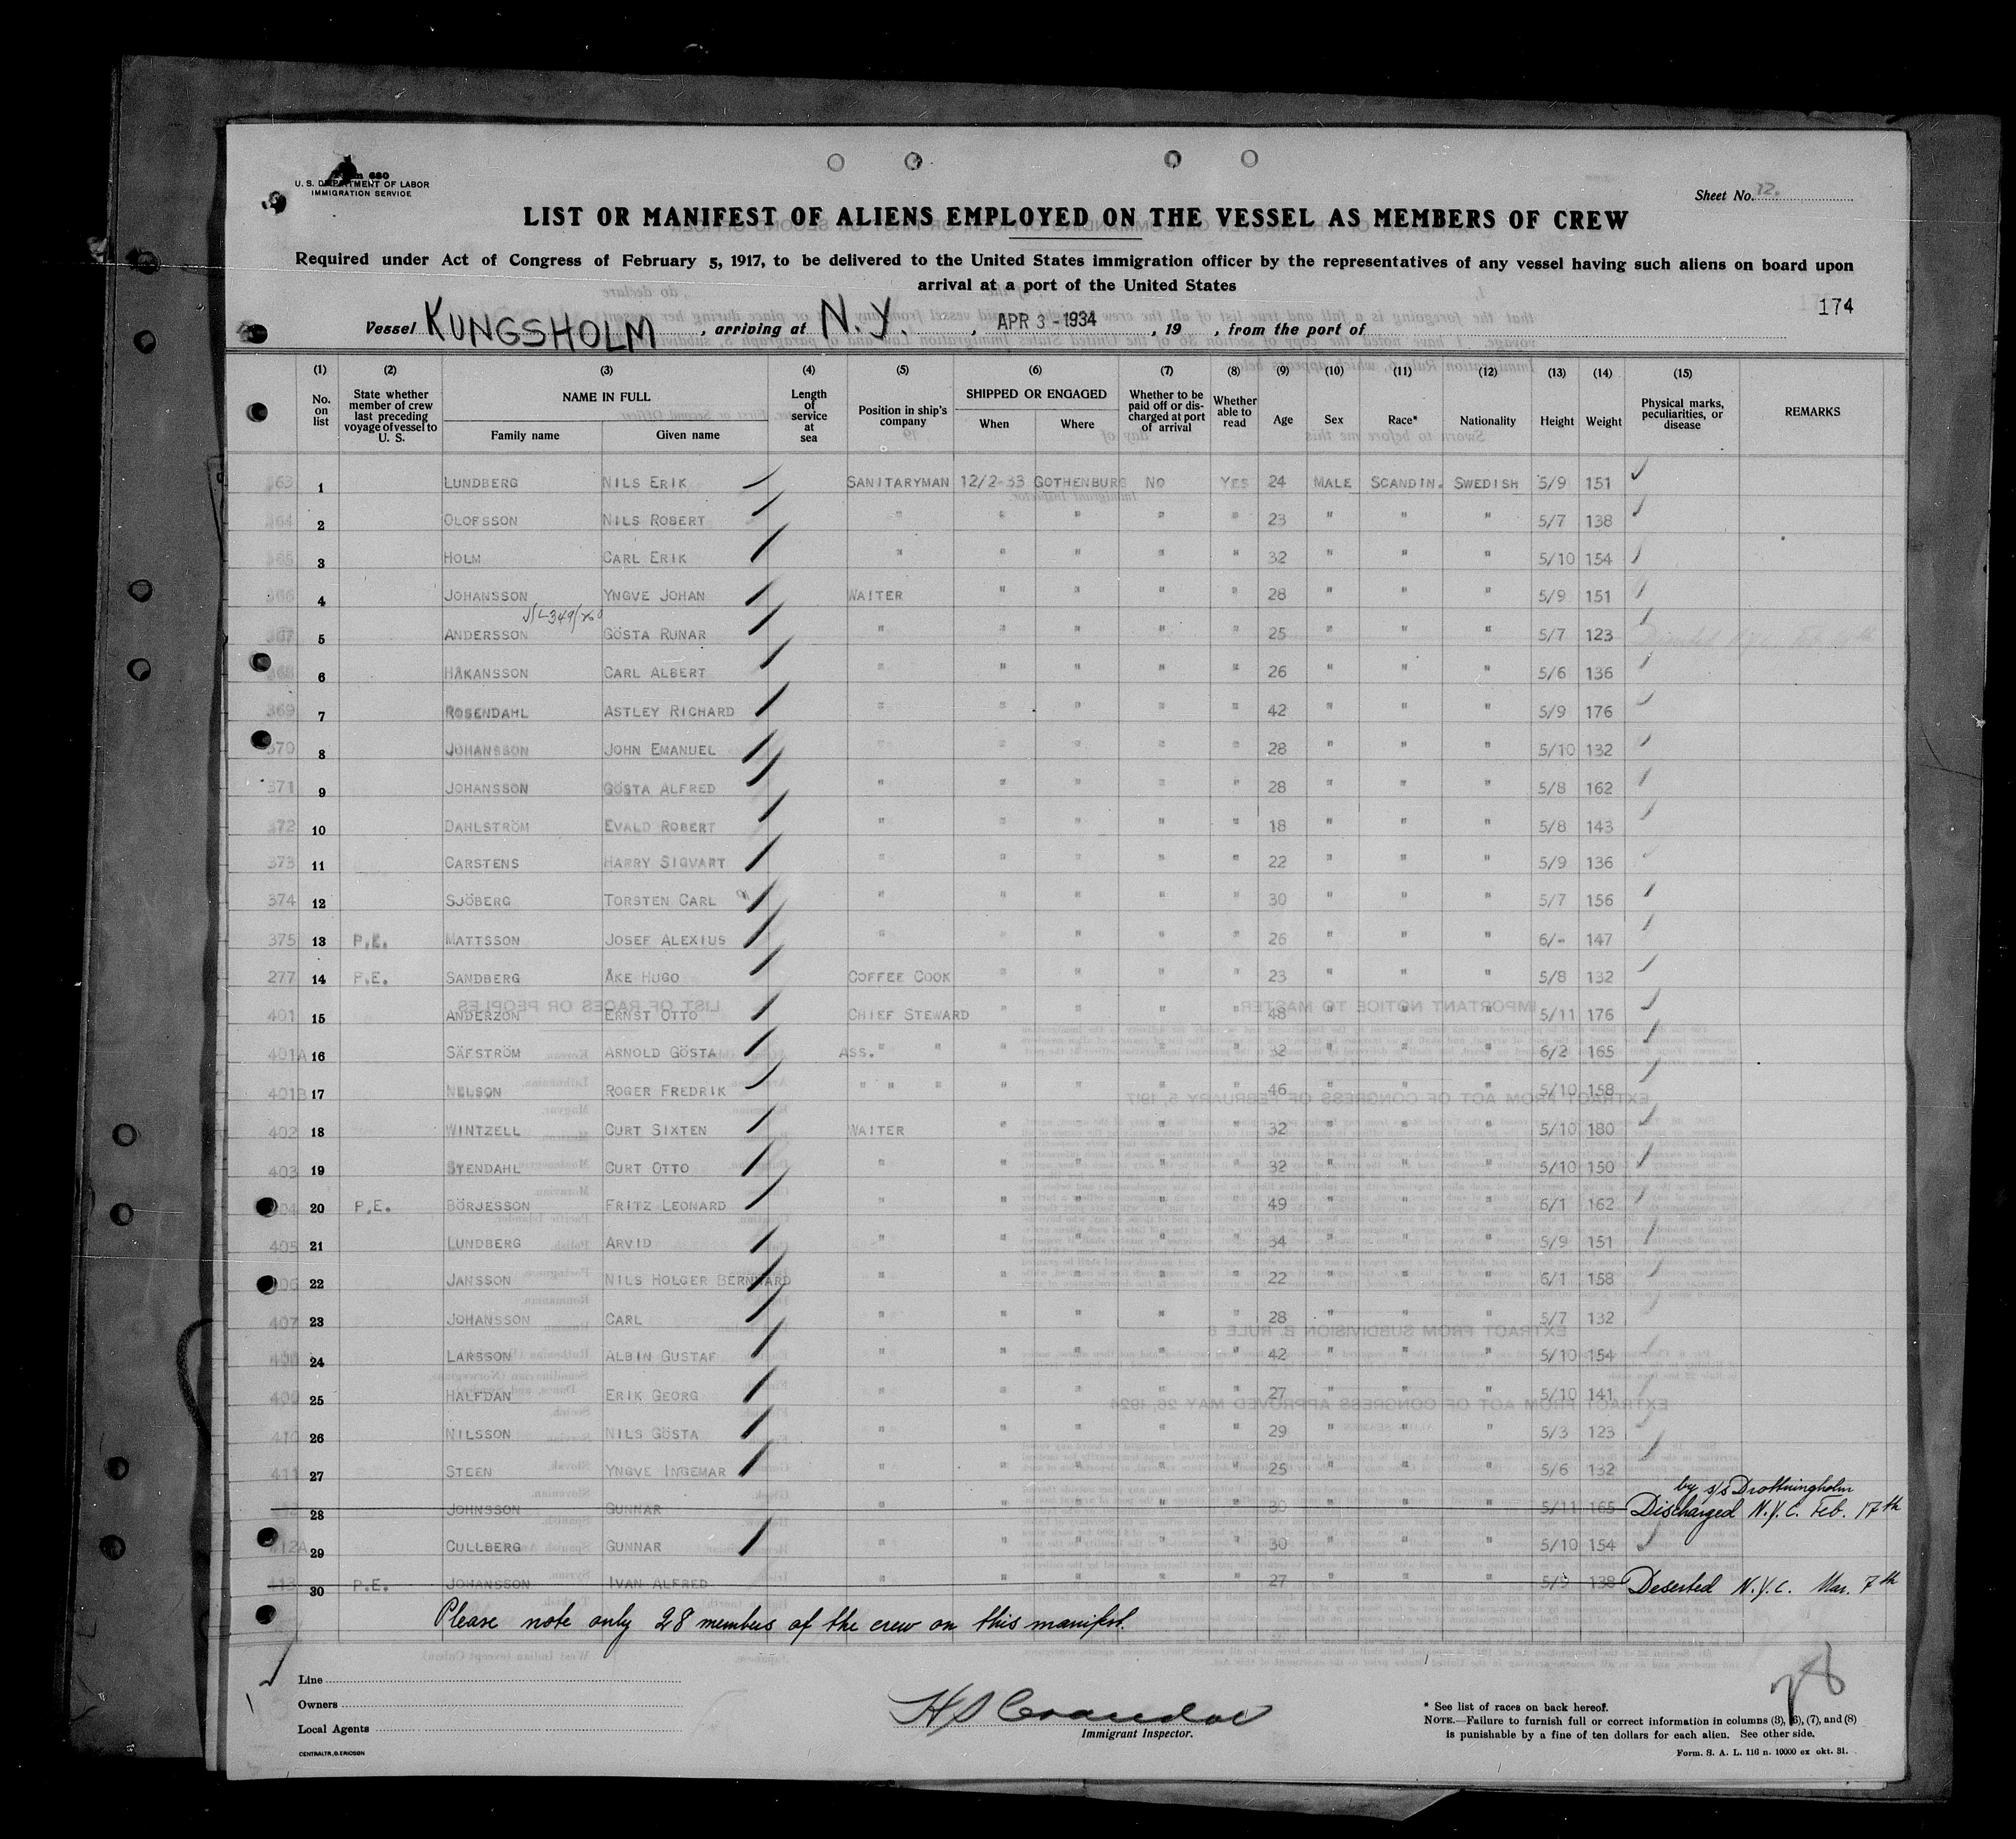 Form 680
U. S. DEPARTMENT OF LABOR
IMMIGRATION SERVICE
Sheet No. 12.
LIST OR MANIFEST OF ALIENS EMPLOYED ON THE VESSEL AS MEMBERS OF CREW
Required under Act of Congress of February 5, 1917, to be delivered to the United States immigration officer by the representatives of any vessel having such aliens on board upon
arrival at a port of the United States
174
Vessel KUNGSHOLM, arriving at N. Y., APR 3 - 1934, 19 , from the port of
(1) (2) (3) (4) (5) (6) (7) (8) (9) (10) (11) (12) (13) (14) (15)
No. on list State whether member of crew last preceding voyage of vessel to U. S. NAME IN FULL Family name Given name Length of service at sea Position in ship's company SHIPPED OR ENGAGED When Where Whether to be paid off or discharged at port of arrival Whether able to read Age Sex Race* Nationality Height Weight Physical marks, peculiarities, or disease REMARKS
363 1 LUNDBERG NILS ERIK SANITARYMAN 12/2-33 GOTHENBURG NO YES 24 MALE SCANDIN. SWEDISH 5/9 151
364 2 OLOFSSON NILS ROBERT " " " " " 23 " " " 5/7 138
365 3 HOLM CARL ERIK " " " " " 32 " " " 5/10 154
366 4 JOHANSSON YNGVE JOHAN WAITER " " " " 28 " " " 5/9 151
367 5 ANDERSSON GÖSTA RUNAR " " " " " 25 " " " 5/7 123
368 6 HÅKANSSON CARL ALBERT " " " " " 26 " " " 5/6 136
369 7 ROSENDAHL ASTLEY RICHARD " " " " " 42 " " " 5/9 176
370 8 JOHANSSON JOHN EMANUEL " " " " " 28 " " " 5/10 132
371 9 JOHANSSON GÖSTA ALFRED " " " " " 28 " " " 5/8 162
372 10 DAHLSTRÖM EVALD ROBERT " " " " " 18 " " " 5/8 143
373 11 CARSTENS HARRY SIGVART " " " " " 22 " " " 5/9 136
374 12 SJÖBERG TORSTEN CARL " " " " " 30 " " " 5/7 156
375 13 P.E. MATTSSON JOSEF ALEXIUS " " " " " 26 " " " 6/- 147
277 14 P.E. SANDBERG ÅKE HUGO COFFEE COOK " " " " 23 " " " 5/8 132
401 15 ANDERZON ERNST OTTO CHIEF STEWARD " " " " 48 " " " 5/11 176
401A 16 SÄFSTRÖM ARNOLD GÖSTA ASS. " " " " " " 32 " " " 6/2 165
401B 17 NELSON ROGER FREDRIK " " " " " " " 46 " " " 5/10 158
402 18 WINTZELL CURT SIXTEN WAITER " " " " 32 " " " 5/10 180
403 19 STENDAHL CURT OTTO " " " " " 32 " " " 5/10 150
404 20 P.E. BÖRJESSON FRITZ LEONARD " " " " " 49 " " " 6/1 162
405 21 LUNDBERG ARVID " " " " " 34 " " " 5/9 151
406 22 JANSSON NILS HOLGER BERNHARD " " " " " 22 " " " 6/1 158
407 23 JOHANSSON CARL " " " " " 28 " " " 5/7 132
408 24 LARSSON ALBIN GUSTAF " " " " " 42 " " " 5/10 154
409 25 HALFDAN ERIK GEORG " " " " " 27 " " " 5/10 141
410 26 NILSSON NILS GÖSTA " " " " " 29 " " " 5/3 123
411 27 STEEN YNGVE INGEMAR " " " " " 25 " " " 5/6 132
by s/s Drottningholm
412 28 JOHNSSON GUNNAR " " " " " 30 " " " 5/11 165 Discharged N.Y.C. Feb. 17th
412A 29 CULLBERG GUNNAR " " " " " 30 " " " 5/10 154
413 30 P.E. JOHANSSON IVAN ALFRED " " " " " 27 " " " 5/9 138 Deserted N.Y.C. Mar. 7th
Please note only 28 members of the crew on this manifest.
28
Line
Owners
Local Agents
CENTRALTR, G. ERICSON
Immigrant Inspector.
* See list of races on back hereof.
NOTE.—Failure to furnish full or correct information in columns (3), (6), (7), and (8)
is punishable by a fine of ten dollars for each alien. See other side.
Form. S. A. L. 116 n. 10000 ex okt. 31.